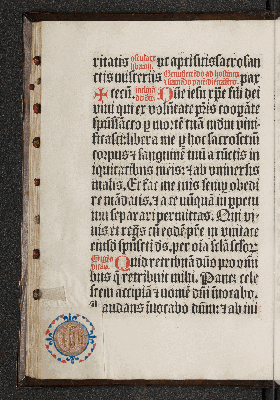 ritatis osculare librum. vt apti sim⁹ sacrosan
ctis misteriis Pax
tecū. Dñe iesu xp̄e fili dei
viui qui ex volūtate pr̄is coopāte
spūsācto p mortē tuā mūdū viui
ficasti: libera me p hoc sacrosctm̄
corpus & sanguinē tuū a cūctis in
iquitatibus meis: & ab vniuersis
malis. Et fac me tuis semp̱ obedi
re mādatis. & a te nūquā in ppetu
um separari permittas. Qui vi
uis et regn̄s cū eodē pr̄e in vnitate
eiusdē spūsscti ds̄. per oīa sc̄la sc̄lor̄.
Quid retribuā dn̄o pro om̄i
bus q̄ retribuit mihi. Panē cele
stem accipiā & nomē dn̄i inuocabo.
Laudans inuocabo dn̄m: & ab ini